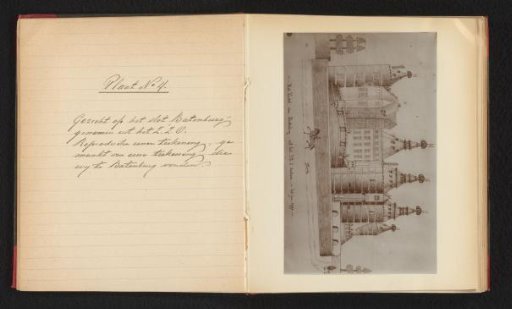 Plaat No 4.
Gezicht op het slot Batenburg,
genomen uit het Z.Z.O.
Reproductie eener teekening, ge-
maakt van eene teekening, die
wij te Batenburg vonden.